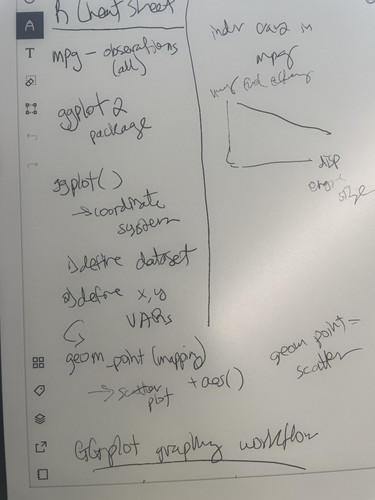 R Cheat Sheet
mpg - observations
(all)
ggplot2
package
ggplot()
→ coordinate
system
1) define dataset
2) define x, y
VARs
geom_point (mapping)
→ scatter
plot
+ aes()
GGplot graphing workflow
indv cars in
mpg
fuel
disp
engine
size
geom point =
scatter